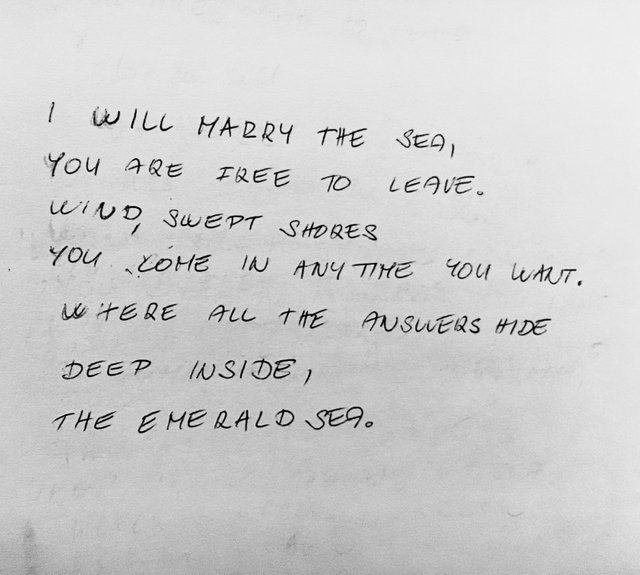 I WILL MARRY THE SEA,
YOU ARE FREE TO LEAVE.
WIND, SWEPT SHORES
YOU COME IN ANYTIME YOU WANT.
WHERE ALL THE ANSWERS HIDE
DEEP INSIDE,
THE EMERALD SEA.